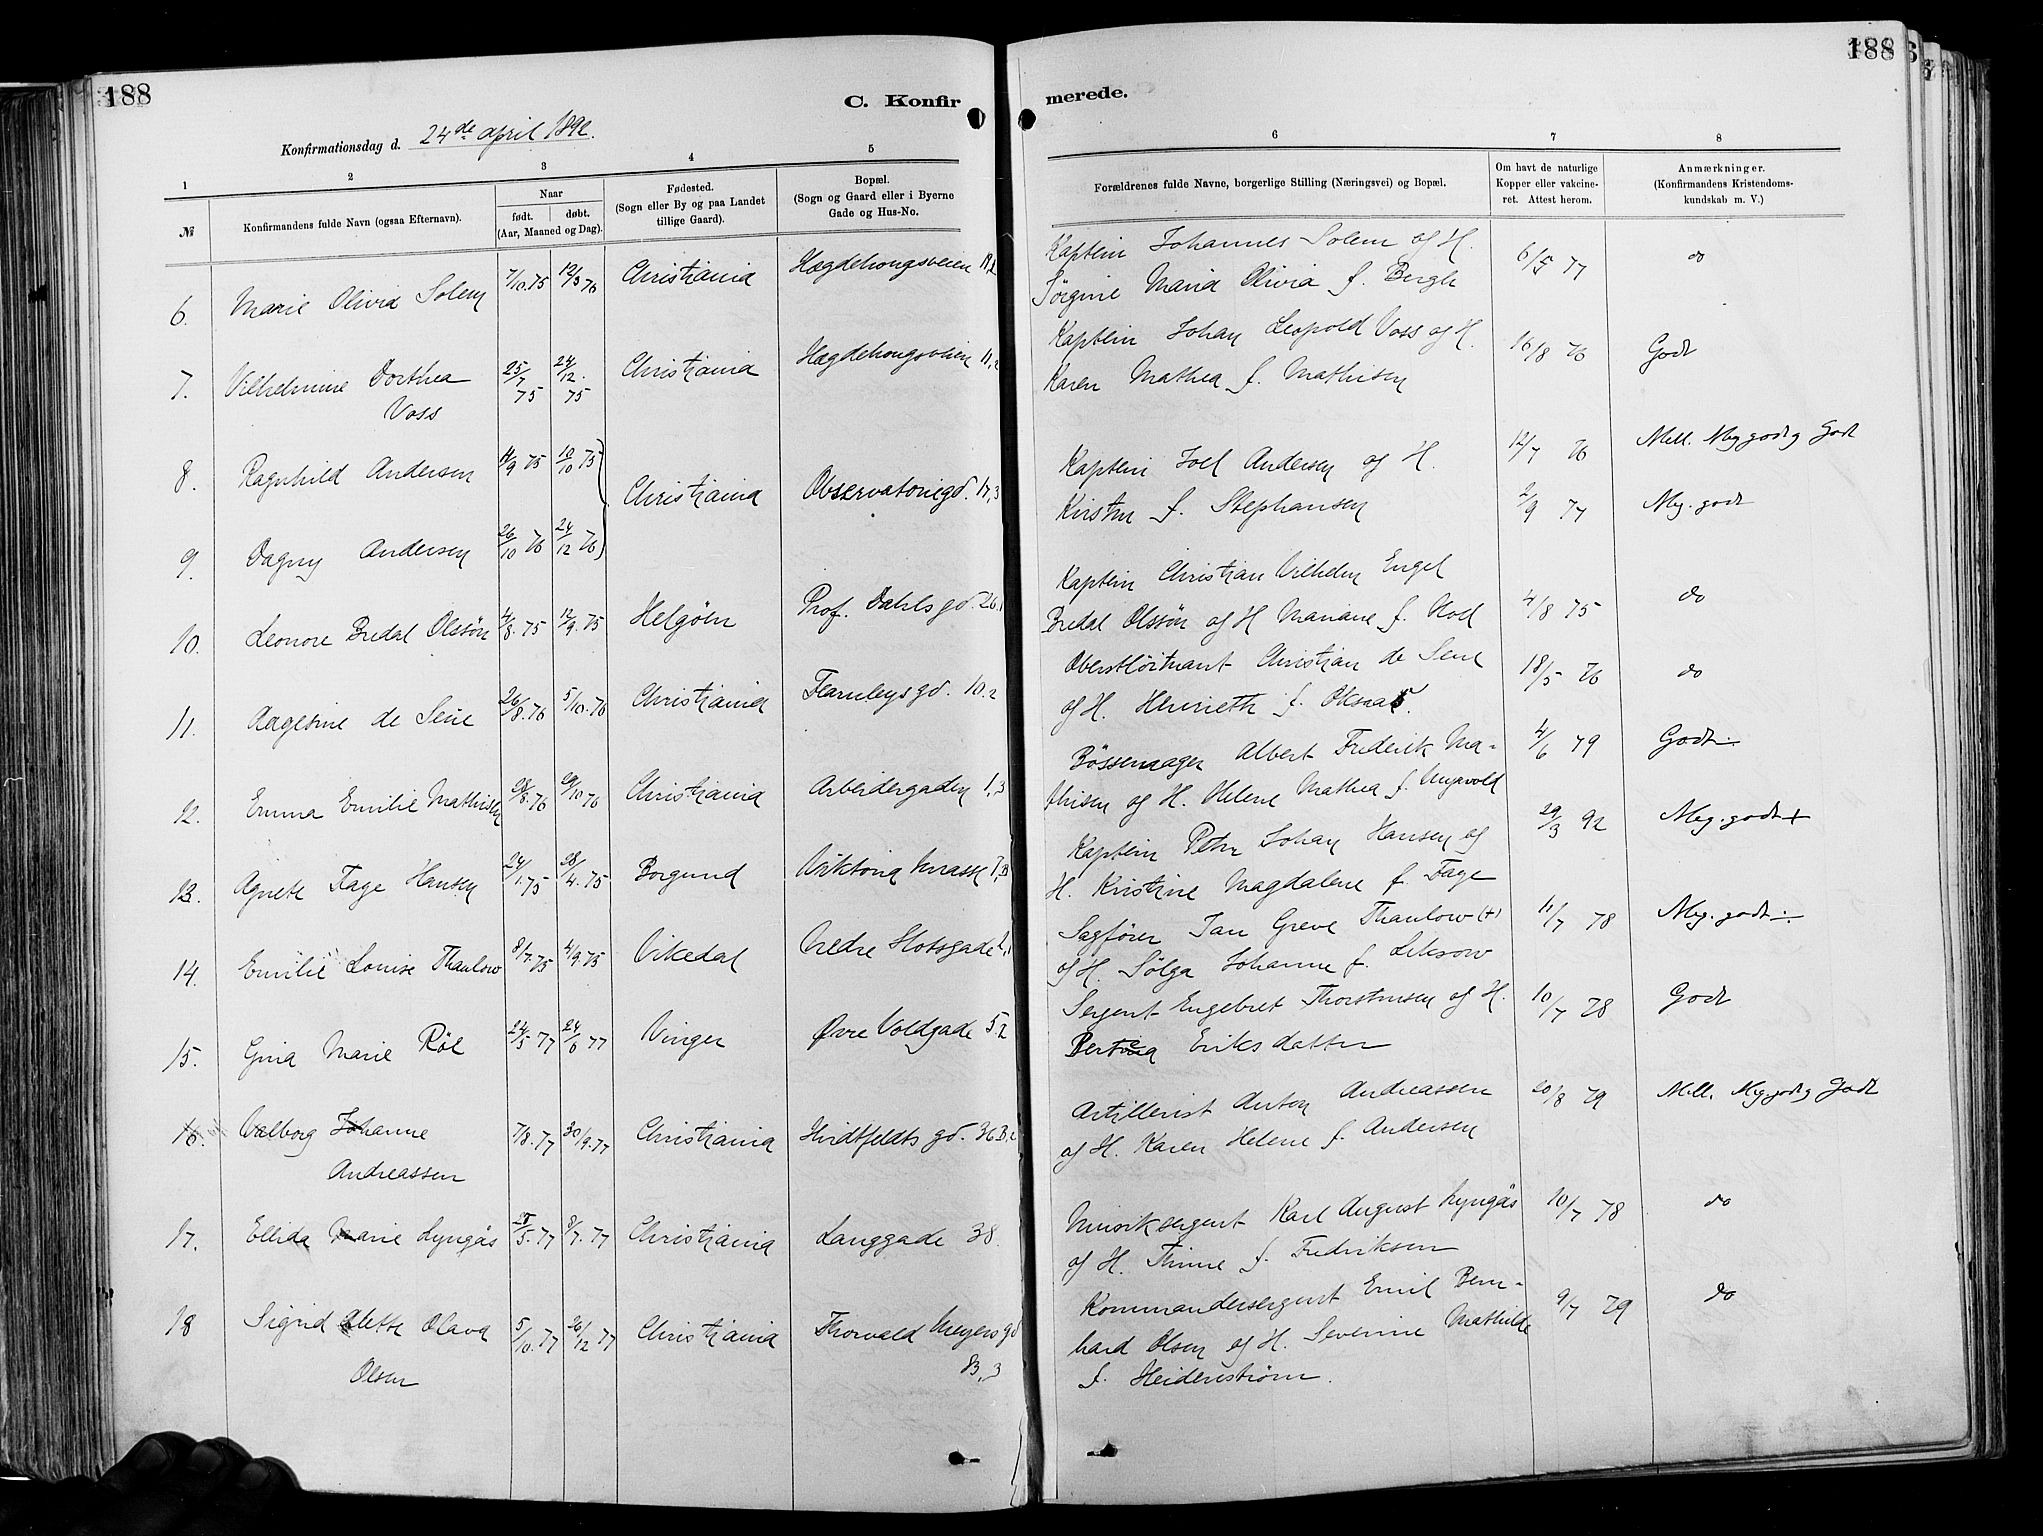 188
C. Konfir
merede.
188
Konfirmationsdag d. 24de april 1892.
1
2
3
4
5
6
7
8
№
Konfirmandens fulde Navn (ogsaa Efternavn).
Naar
født. døbt.
(Aar, Maaned og Dag).
Fødested.
(Sogn eller By og paa Landet
tillige Gaard).
Bopæl.
(Sogn og Gaard eller i Byerne
Gade og Hus-No.
Forældrenes fulde Navne, borgerlige Stilling (Næringsvei) og Bopæl.
Om havt de naturlige
Kopper eller vakcine-
ret. Attest herom.
Anmærkninger.
(Konfirmandens Kristendoms-
kundskab m. V.)
6. Marie Olivia Solem 7/10.75 12/3 76 Christiania Hægdehougsveien
Kaptein Johannes Solem og H. 6/5 77 do
Jørgine Maria Olivia f. Bergh
7. Vilhelmine Dorthea 25/7 75 24/12. 75 Christiania Hægdehougsveien 11,2
Voss
Kaptein Johan Leopold Voss og H. 16/8 76 Godt
Karen Mathea f. Mathisen
8. Ragnhild Andersen 4/9 75 10/10 75 Christiania Observatoriegd. 17,3
Kaptein Joel Andersen og H. 12/7 76 Mell. Meg godt og Godt
9. Dagny Andersen 26/10 76 24/12 76
Kirstine f. Stephansen 2/9 77 Meg. godt
10. Leonore Bredal Olssøn 4/8. 75 12/9. 75 Helgøen Prof. Dahls gd. 26.1
Kaptein Christian Vilhelm Engel
Bredal Olssøn og H Mariane f. Holl 4/8 75 do
11. Aagesine de Seue 26/8.76 5/10.76 Christiania Fearnleys gd. 10.2
Oberstløitnant Christian de Seue 18/5 76 do
og H. Henriette f.
12. Emma Emilie Mathisen 28/8.76 29/10 76 Christiania Arbeidergaden 1,3
Bøssemager Albert Frederik Ma- 4/6 79 Godt
thisen og H. Helene Mathea f. Ungvold
13. Agnete Fage Hansen 24/1.75 28/4.75 Borgund Viktoria terrasse
Kaptein Peter Johan Hansen og 29/3 92 Meg. godt +
H. Kristine Magdalene f. Fage
14. Emilie Louise Thaulow 8/7.75 4/9.75 Vikedal Nedre Slotsgade
Sagfører Jan Greve Thaulow (+) 11/7 78 Meg. godt
og H. Sølga Johanne f.
15. Gina Marie Røe 24/5 77 24/6 77 Vinger Øvre Voldgade 5.2
Sergent Engebret Thorstensen og H. 10/7 78 Godt
Eriksdatter
16. Valborg Johanne 7/8.77 30/9.77 Christiania Hvidtfeldts gd. 36
Andreassen
Artillerist Anton Andreassen 20/8 79 Mell. Meg godt og Godt
og H. Karen Helene f. Andersen
17. Ellida Marie Lyngås 8/7.77 Christiania Langgade 38.
Musiksergent Karl August Lyngås 10/7 78 do
og H. Thinne f. Fredriksen
18 Sigrid Alette Olava 5/10.77 26/12 77 Christiania Thorvald Meyers gd
Olsen 8B,3
Kommandersergent Emil Bern- 9/7 79 do
hard Olsen og H. Severine Mathilde
f. Heidenstrøm.